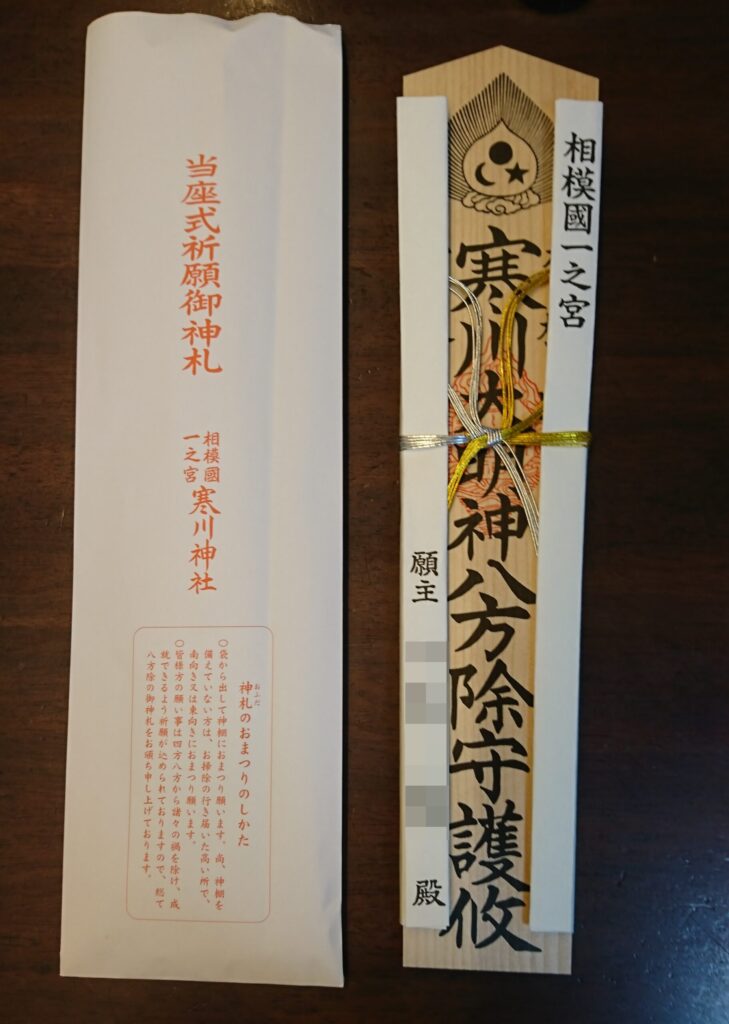 当座式祈願御神札
相模國
一之宮
寒川神社
神札のおまつりのしかた
おふだ
〇袋から出して神棚におまつり願います。尚、神棚を
備えていない方は、お掃除の行き届いた高い所で、
南向き又は東向きにおまつり願います。
〇皆様方の願い事は四方八方から諸々の禍を除け、成
就できるよう祈願が込められておりますので、総て
八方除の御神札をお頒ち申し上げております。
相模國一之宮
寒川大明神八方除守護攸
願主
殿